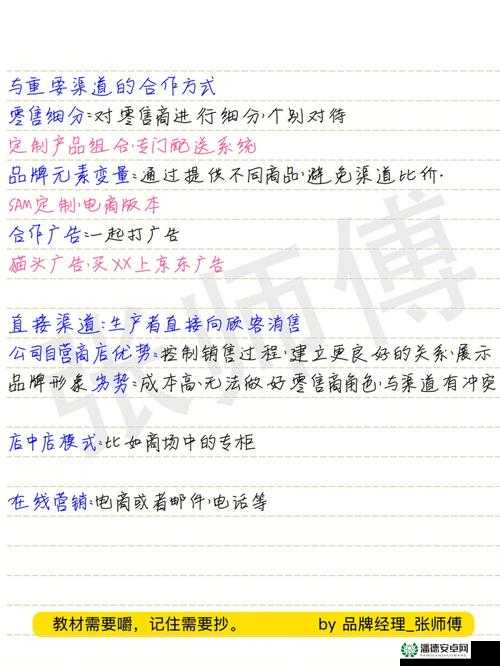 与重要渠道的合作方式
零售细分:对零售商进行细分,个别对待
定制产品组合,专门配送系统
品牌元素变量:通过提供不同商品,避免渠道比价.
SAM定制,电商版本
合作广告:一起打广告
猫头广告,买XX上京东广告
直接渠道:生产者直接向顾客消售
公司自营商店优势:控制销售过程,建立更良好的关系,展示
品牌形象 劣势:成本高,无法做好零售商角色,与渠道有冲突
店中店模式:比如商场中的专柜
在线营销:电商或者邮件,电话等
张师傅
教材需要嚼,记住需要抄。 by 品牌经理_张师傅
潘德安卓网